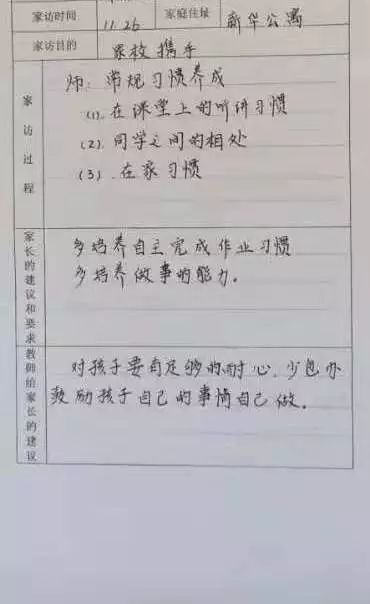 家访时间 11.26 家庭住址 新华公寓
家访目的 家校携手
家访过程
师：常规习惯养成
(1).在课堂上的听讲习惯
(2).同学之间的相处
(3).在家习惯
家长的建议和要求
多培养自主完成作业习惯
多培养做事的能力。
教师给家长的建议
对孩子要有足够的耐心，少包办
鼓励孩子自己的事情自己做。